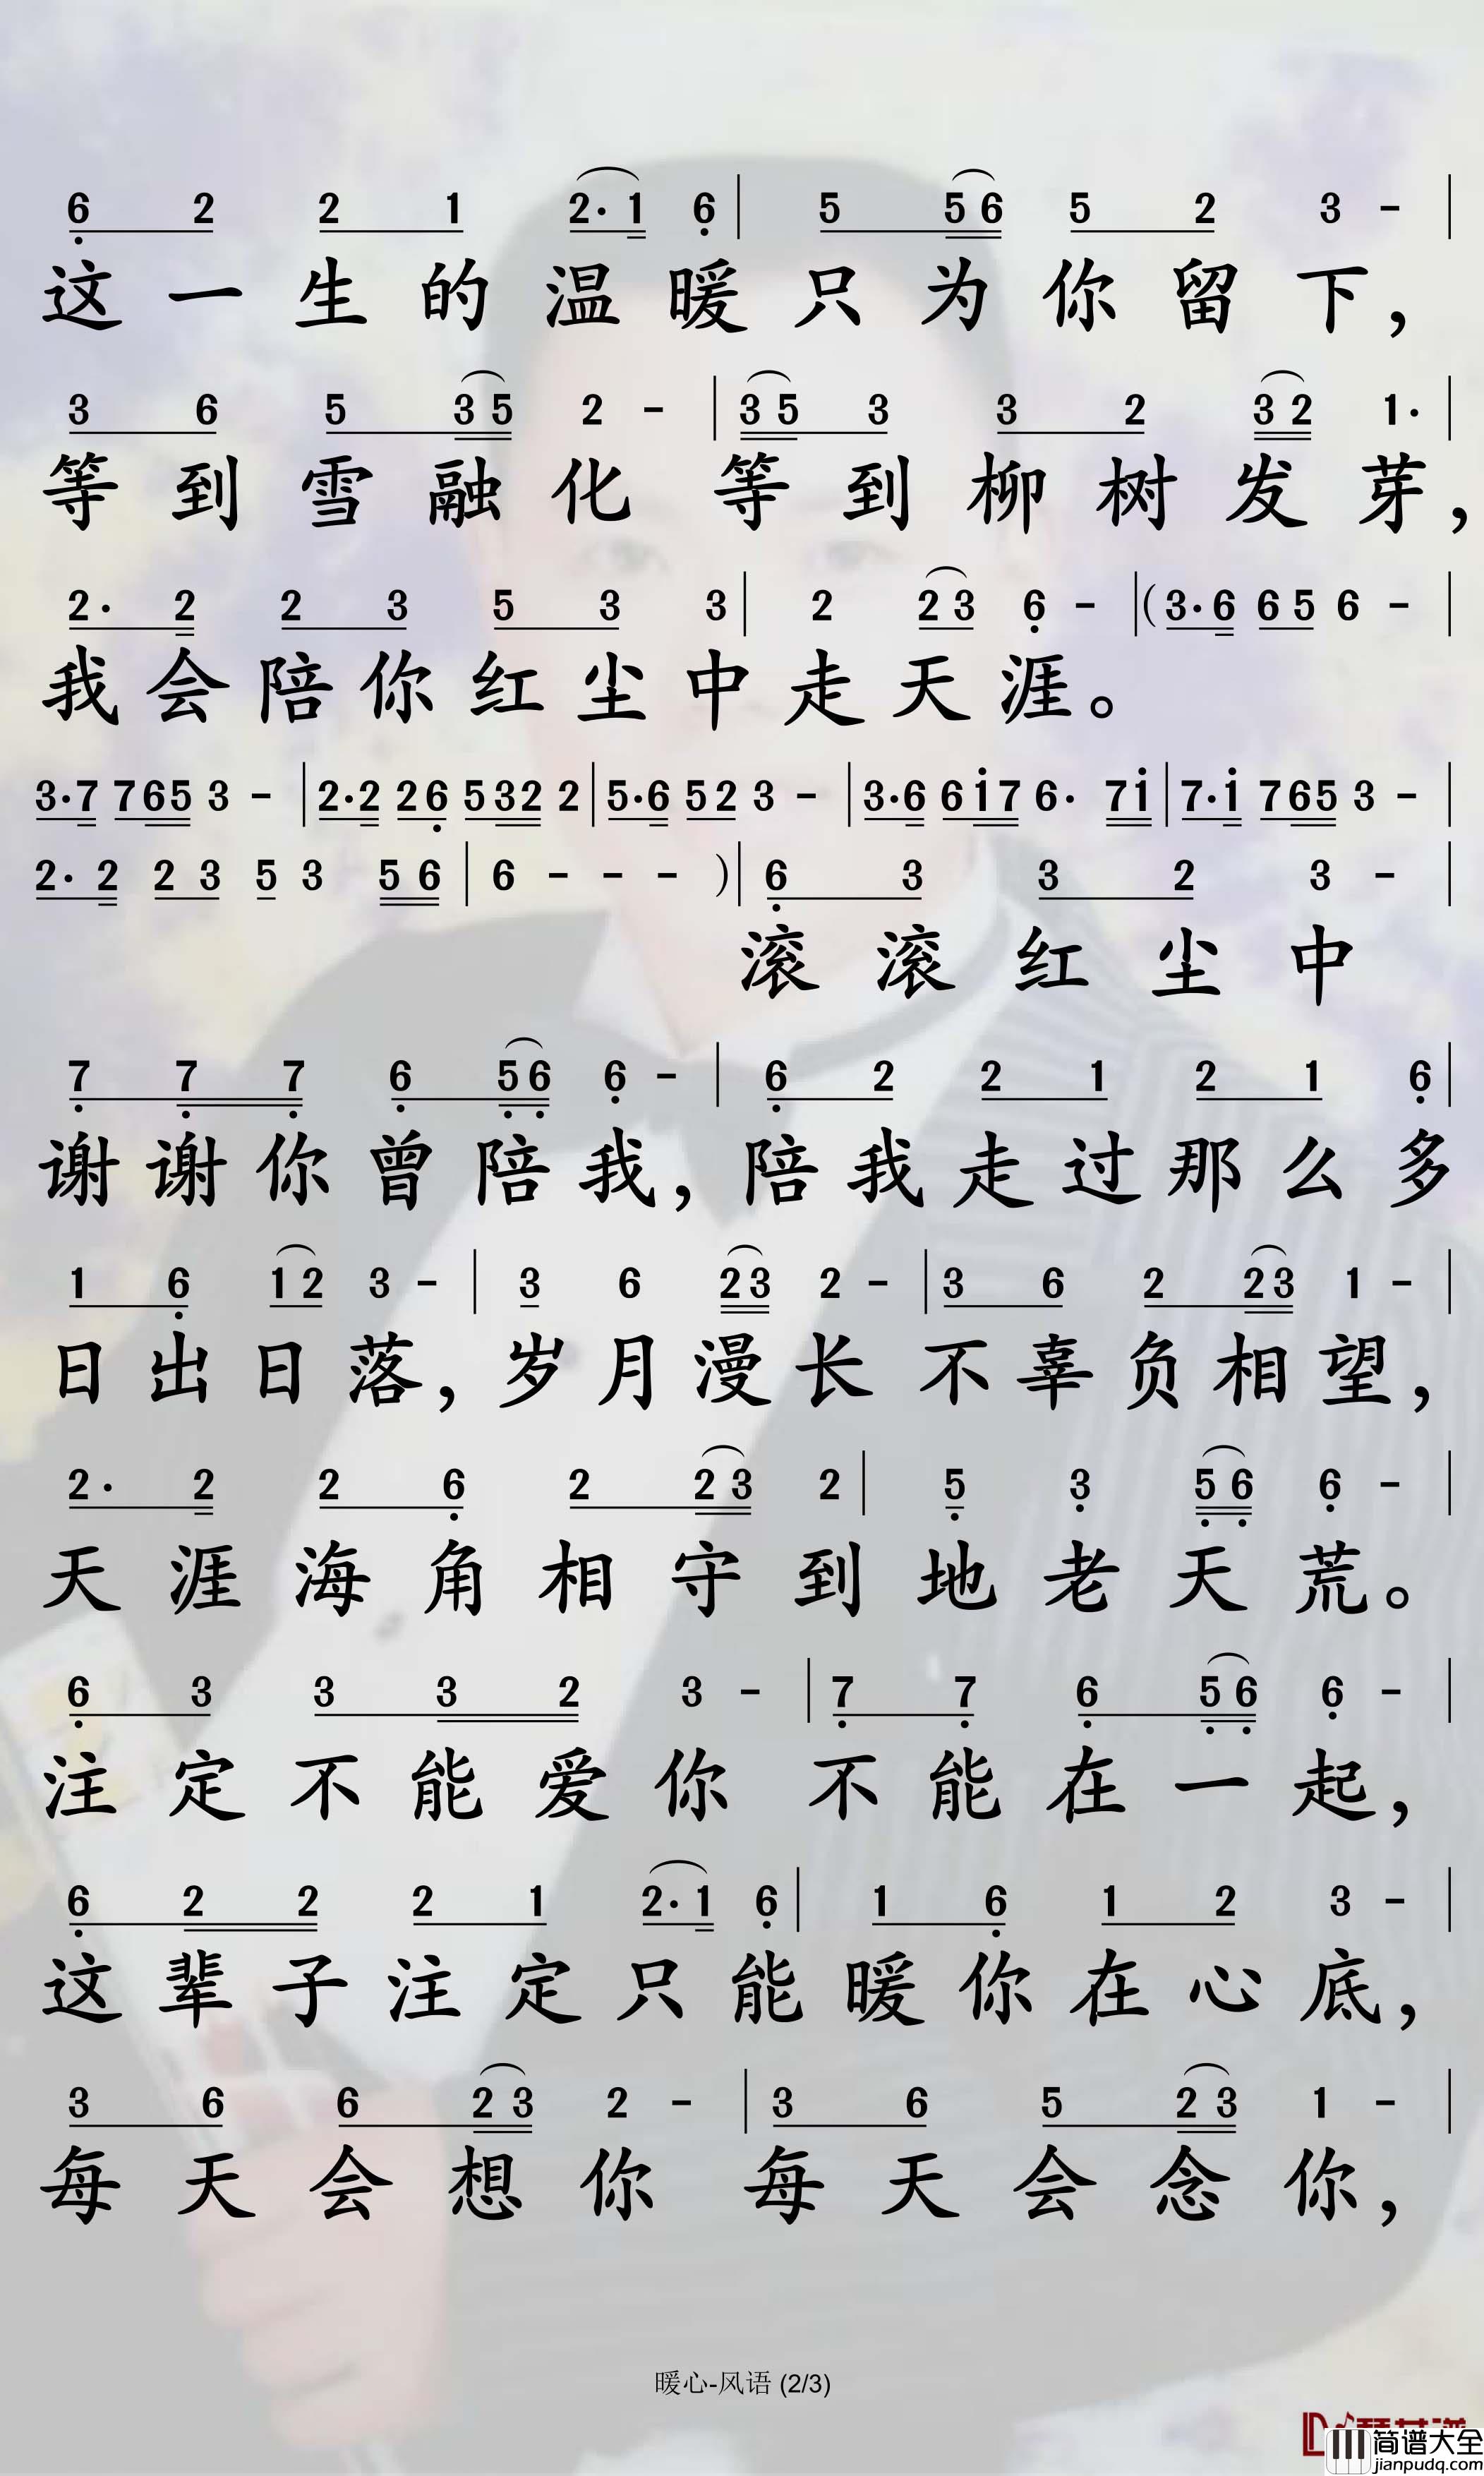 6 2 2 1 2· 1 6 | 5 5 6 5 2 3 - |
这一生的温暖只为你留下，
3 6 5 3 5 2 - | 3 5 3 3 2 3 2 1· |
等到雪融化 等到柳树发芽，
2· 2 2 3 5 3 3 | 2 2 3 6 - | (3·6 6 5 6 - |
我会陪你红尘中走天涯。
3·7 765 3 - | 2·2 26 532 2 | 5·6 52 3 - | 3·6 6i7 6· 7i | 7·i 765 3 - |
2· 2 2 3 5 3 5 6 | 6 - - - ) | 6 3 3 2 3 - |
滚滚红尘中
7 7 7 6 5 6 6 - | 6 2 2 1 2 1 6 |
谢谢你曾陪我，陪我走过那么多
1 6 1 2 3 - | 3 6 2 3 2 - | 3 6 2 2 3 1 - |
日出日落，岁月漫长 不辜负相望，
2· 2 2 6 2 2 3 2 | 5 3 5 6 6 - |
天涯海角相守到地老天荒。
6 3 3 3 2 3 - | 7 7 6 5 6 6 - |
注定不能爱你 不能在一起，
6 2 2 2 1 2· 1 6 | 1 6 1 2 3 - |
这辈子注定只能暖你在心底，
3 6 6 2 3 2 - | 3 6 5 2 3 1 - |
每天会想你 每天会念你，
暖心-风语 (2/3)
简谱大全
jianpudq.com